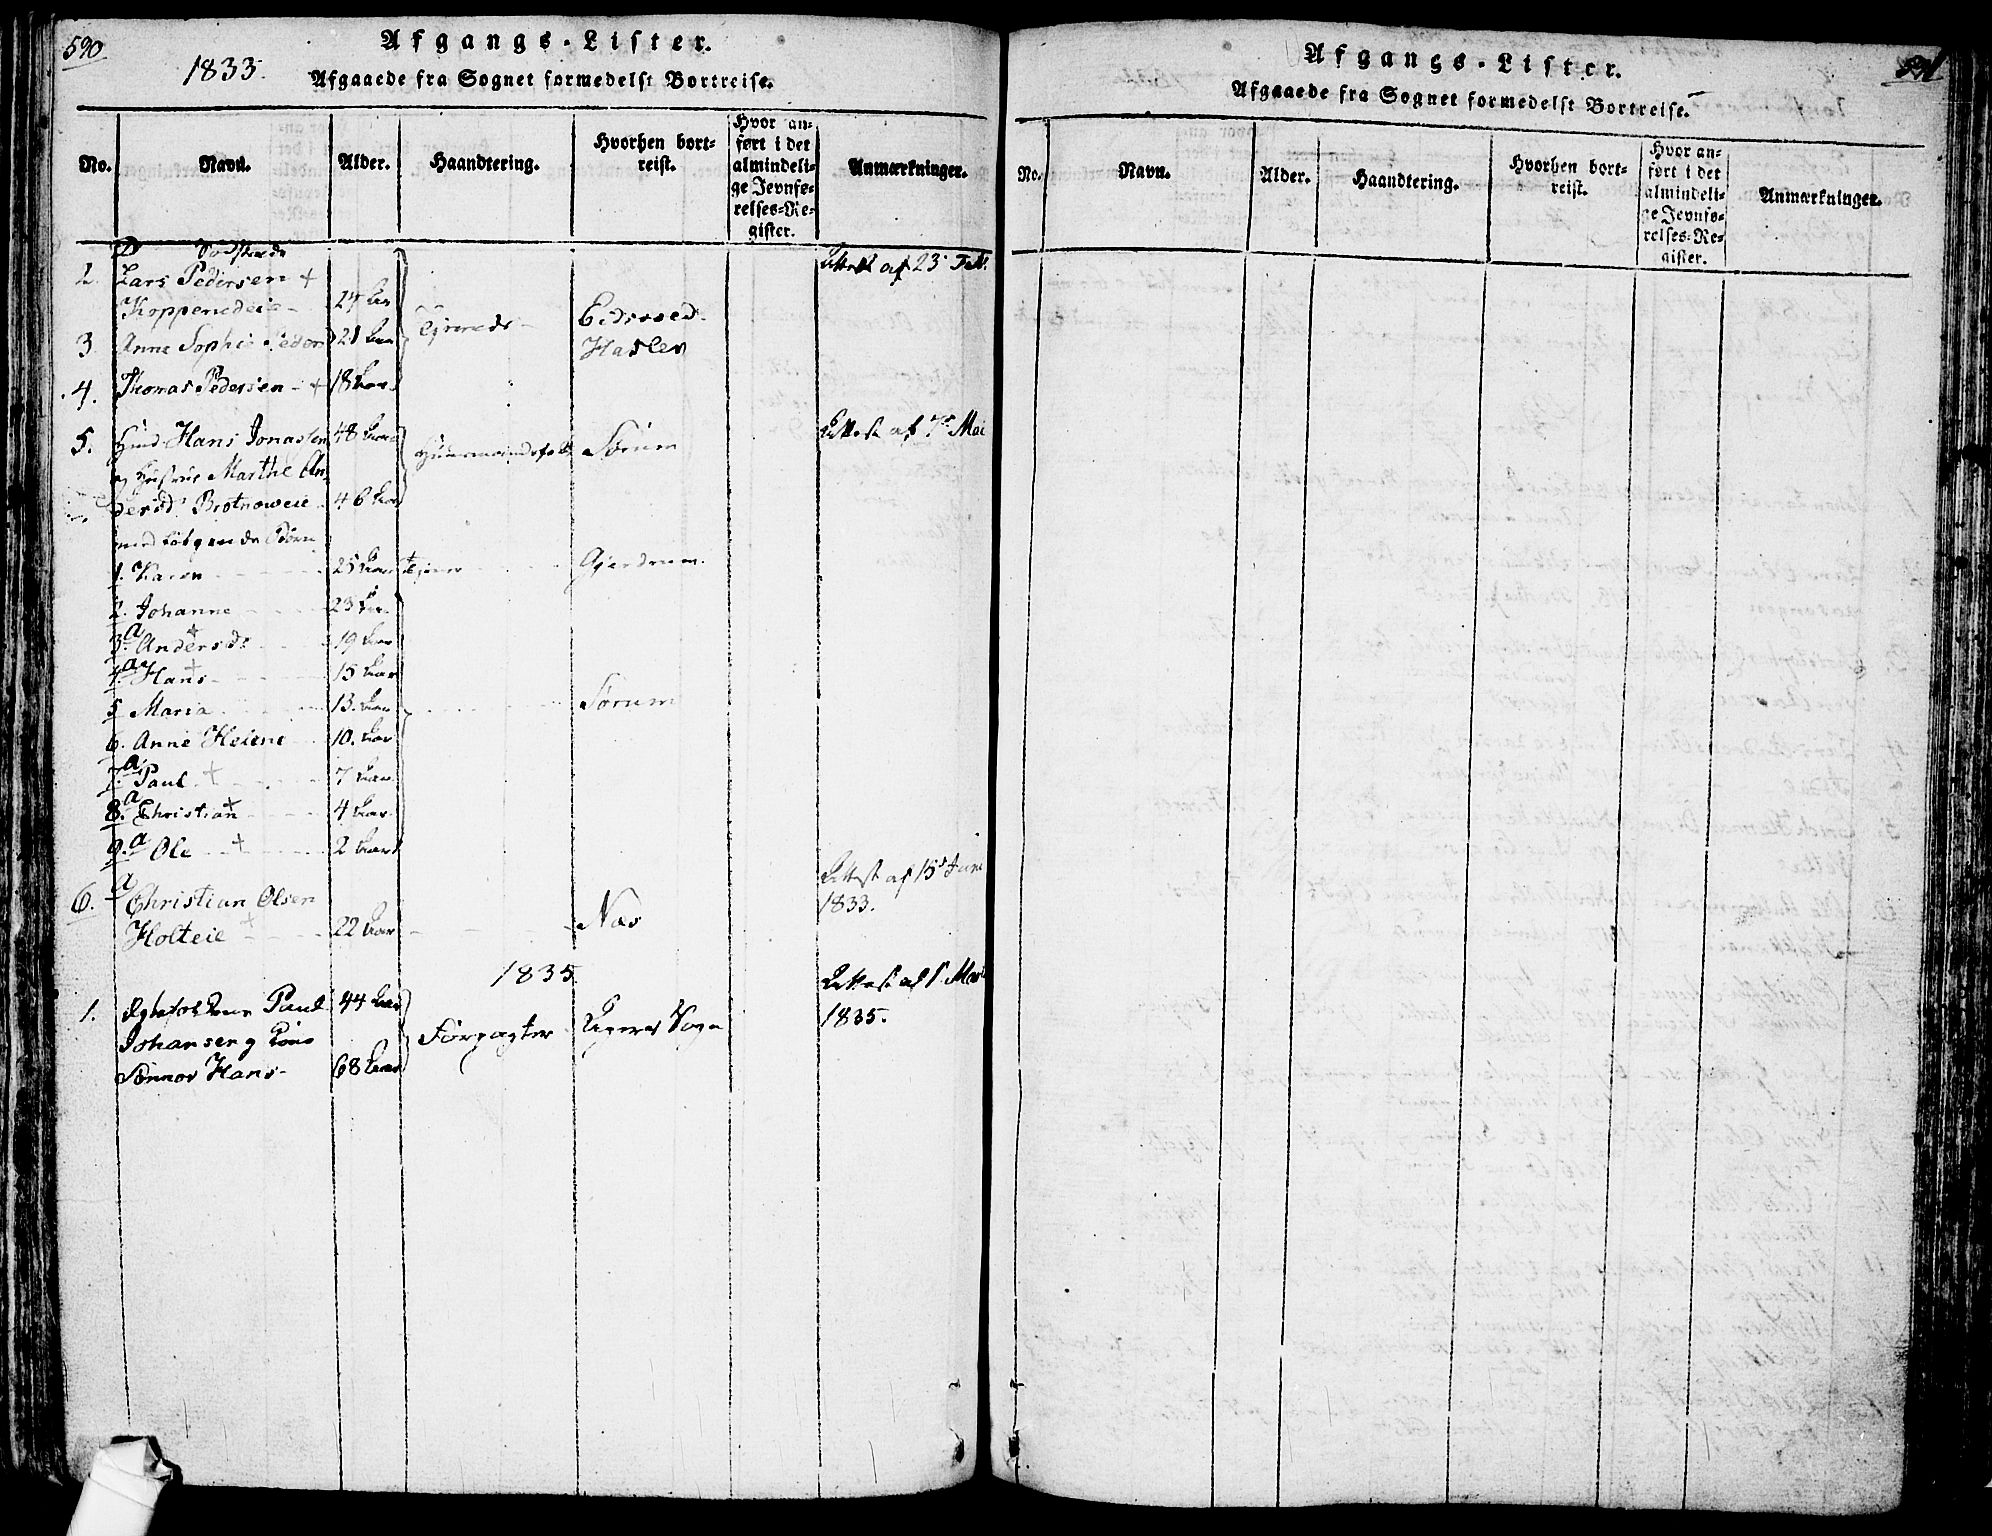 590
1833.
Afgangs-Lister.
Afgaaede fra Sognet formedelst Bortreise.
No.
Navn.
Alder.
Haandtering.
Hvorhen bort-
reist.
Hvor an-
ført i det
almindeli-
ge Jevnfø-
relses-Re-
gister.
Anmærkninger.
2. Lars Pedersen +
Koppenedeie - 24 Aar
Attest af 23 Feb.
3. Anne Sophie 21 Aar
Eidsvold
4. Thomas Pedersen - + 18 Aar
5. Hans Jonassen 48 Aar Sørum Attest af 7 Mai
og Hustrue Marthe An-
dersd 46 Aar
med følgende Børn
1. Karen 25 Aar Gjerdrum.
2. Johanne 23 Aar
3. a Anders + 19 Aar
4. a Hans + 15 Aar
5 Maria 13. Aar Sørum
6. Anne Helene 10. Aar
7. a Paul + 7 Aar
8. a Christian + 4 Aar
9. a Ole + 2 Aar
6. a Christian Olsen Attest af 15 Juni
1833.
Holteie + 22 Aar Næs
1835 Attest af 1. Mar
1. Paul 44 Aar
1835.
Johansen og Forpagter Sogn
Hans- 68 Aar
591
Afgangs-Lister.
Afgaaede fra Sognet formedelst Bortreise.
No.
Navn.
Alder.
Haandtering.
Hvorhen bort-
reist.
Hvor an-
ført i det
almindeli-
ge Jevnfø-
relses-Re-
gister.
Anmærkninger.